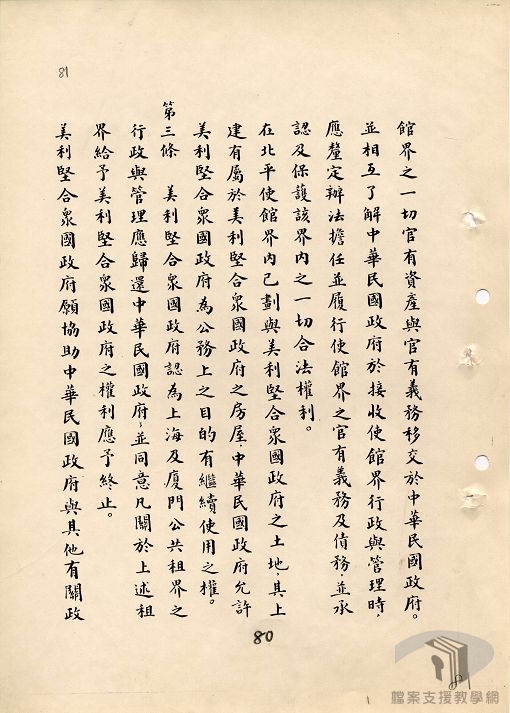 81
館界之一切官有資產與官有義務移交於中華民國政府。
並相互了解中華民國政府於接收使館界行政與管理時，
應釐定辦法擔任並履行使館界之官有義務及債務，並承
認及保護該界內之一切合法權利。
在北平使館界內已劃與美利堅合眾國政府之土地，其上
建有屬於美利堅合眾國政府之房屋，中華民國政府允許
美利堅合眾國政府為公務上之目的有繼續使用之權。
第三條 美利堅合眾國政府認為上海及廈門公共租界之
行政與管理應歸還中華民國政府，並同意凡關於上述租
界給予美利堅合眾國政府之權利應予終止。
美利堅合眾國政府願協助中華民國政府與其他有關政
80
81
檔案支援教學網